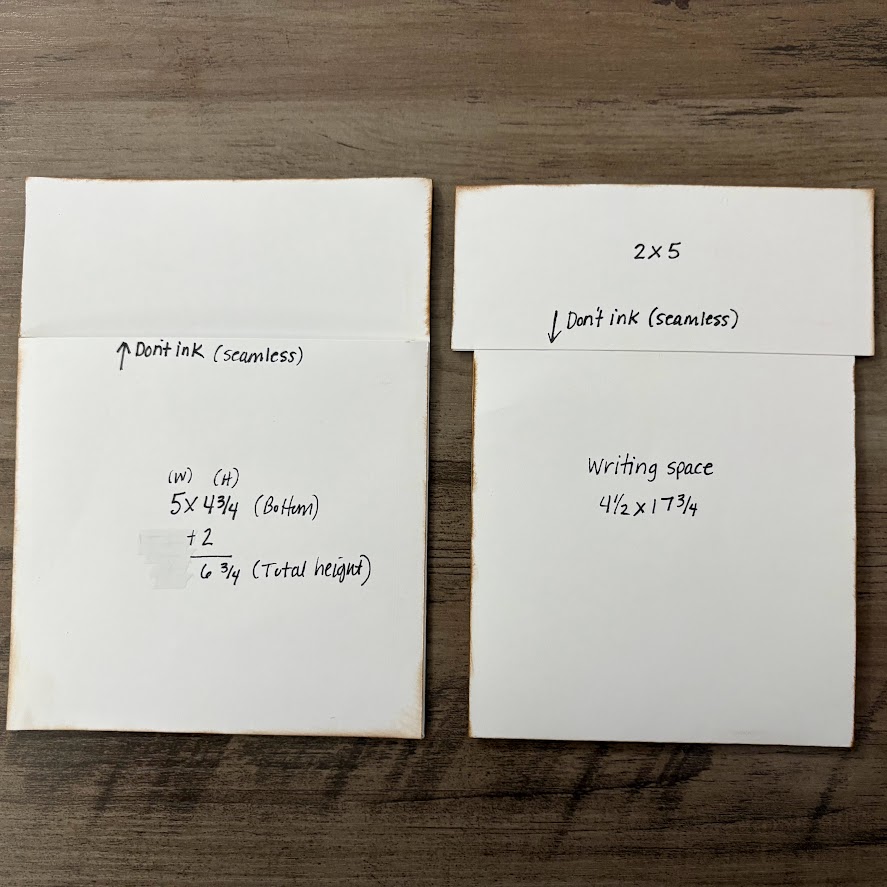 ↑ Don't ink (seamless)
(W) (H)
5 x 4 3/4 (Bottom)
+ 2
6 3/4 (Total height)
2 x 5
↓ Don't ink (seamless)
Writing space
4 1/2 x 17 3/4